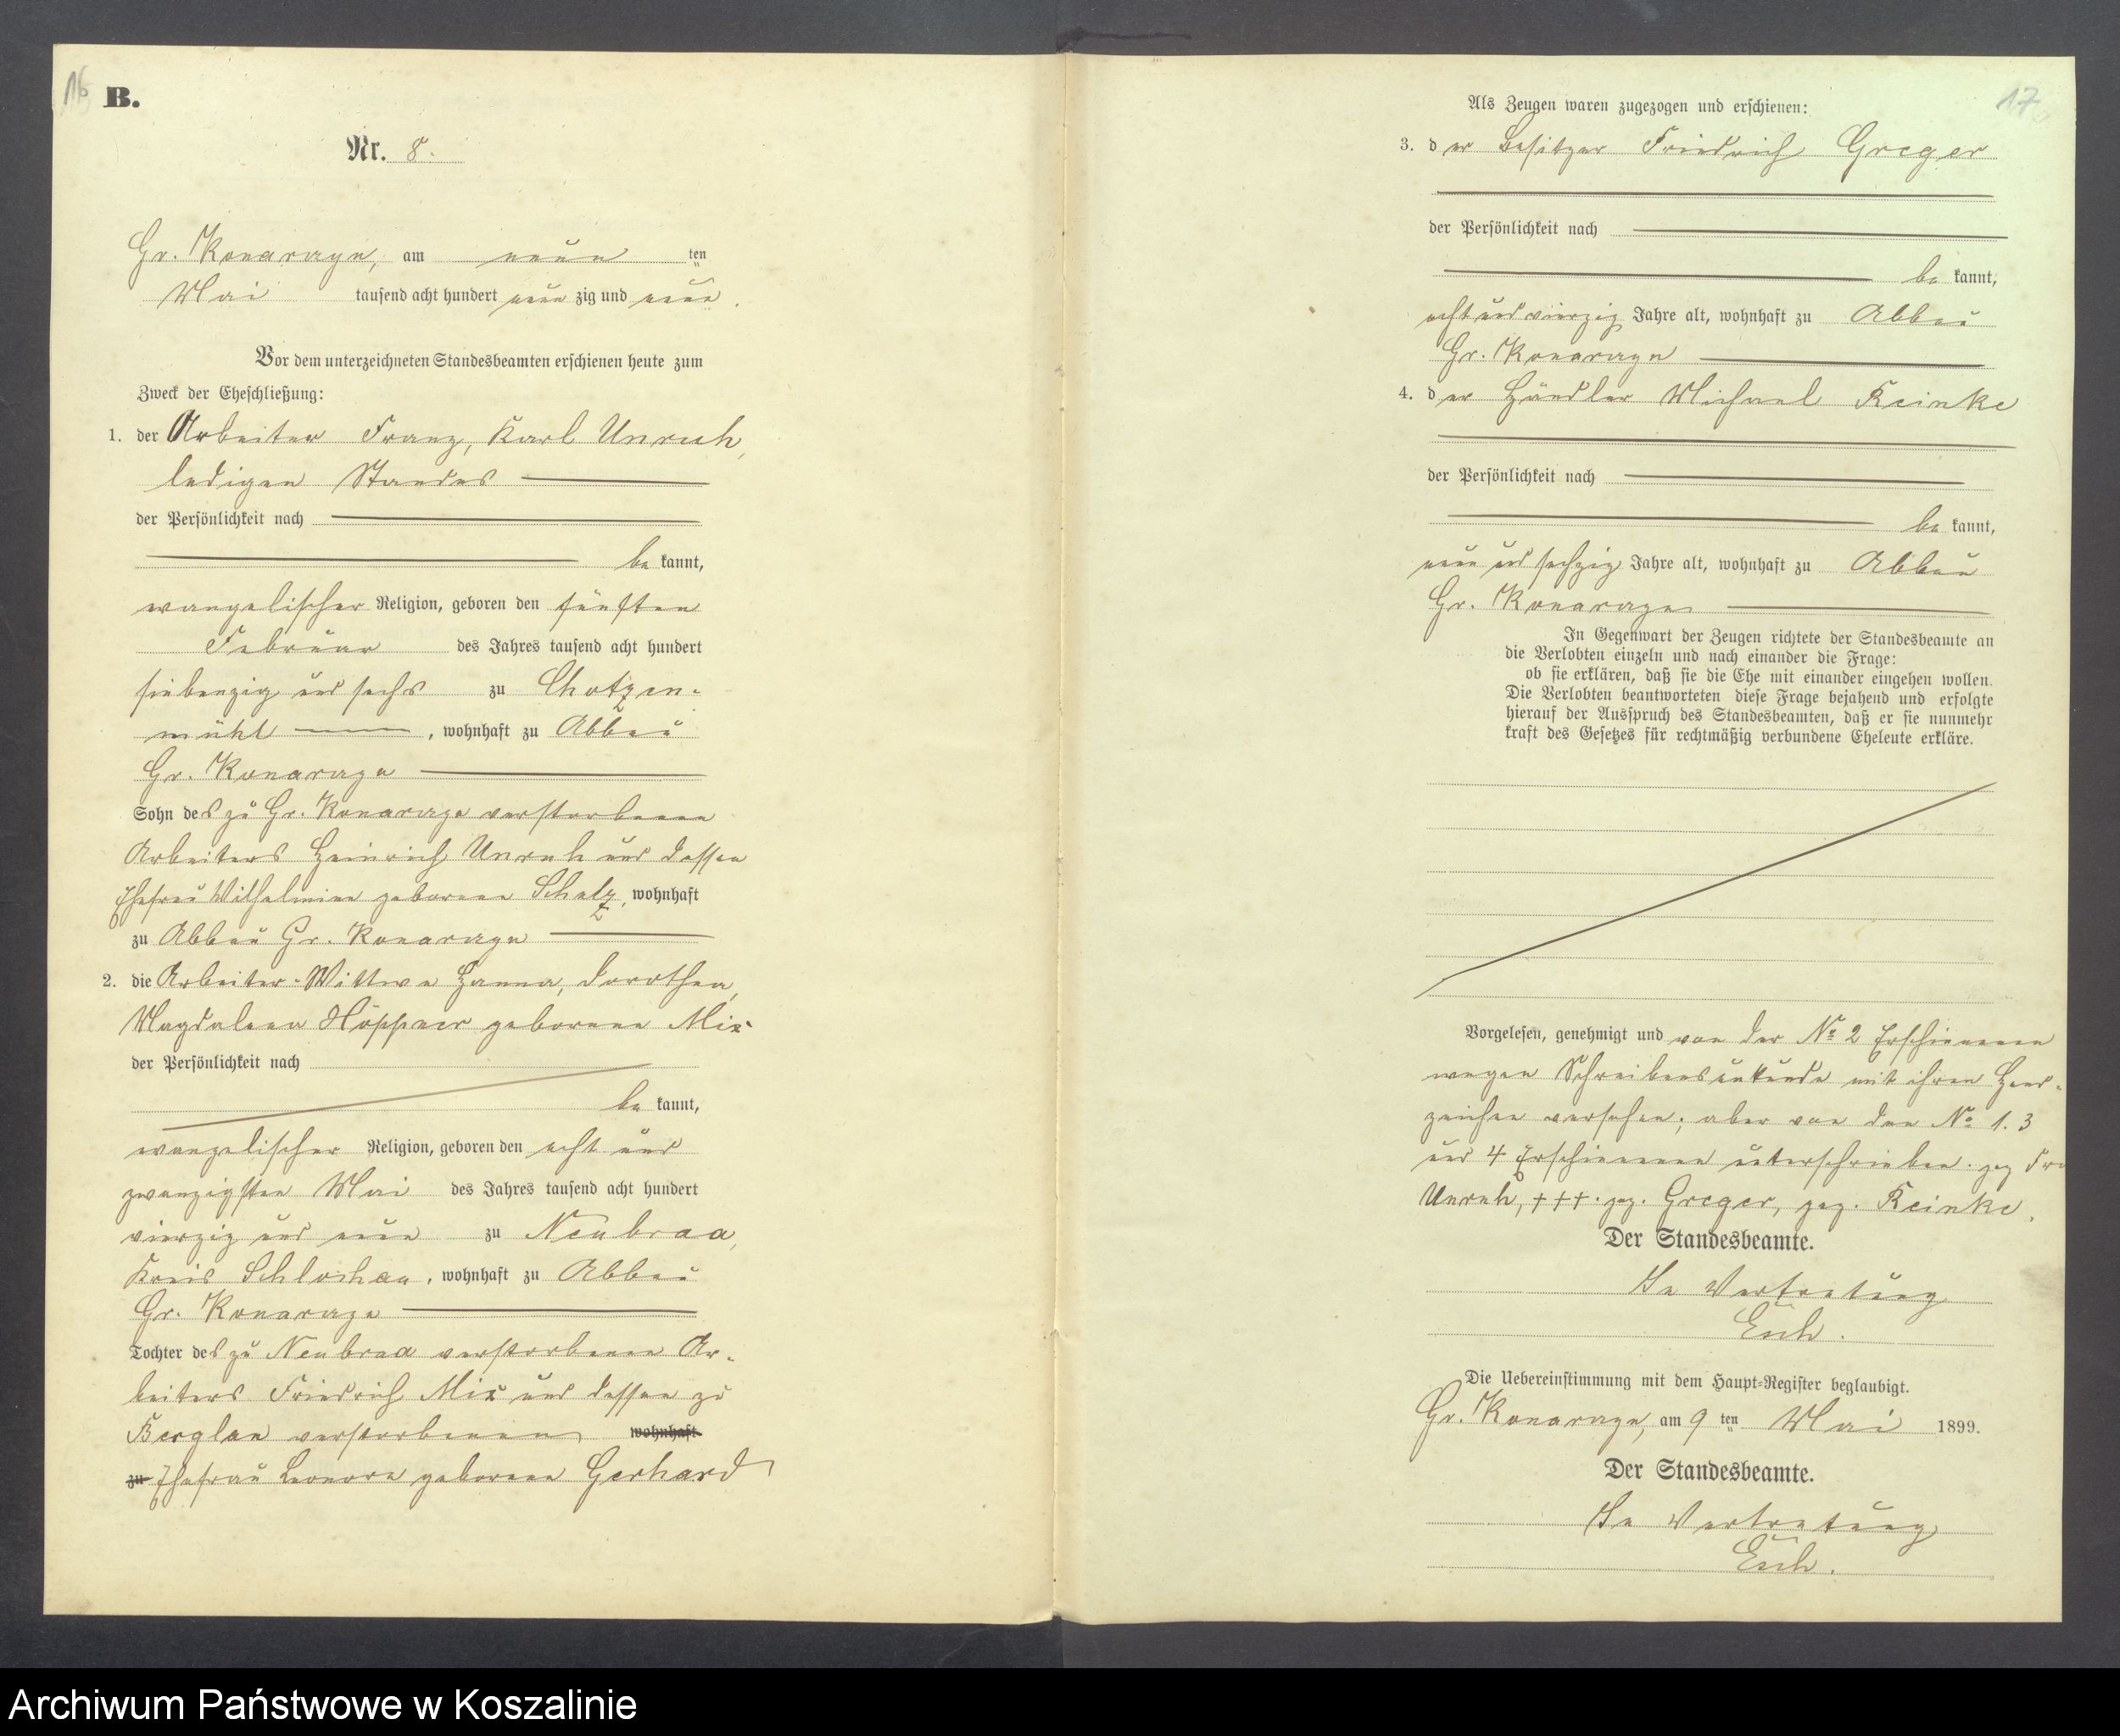 16
B.
Nr. 8.
Gr. Konarczyn, am neun ten
Mai tausend acht hundert neun zig und neun.
Vor dem unterzeichneten Standesbeamten erschienen heute zum
Zweck der Eheschließung:
1. der Arbeiter Franz, Karl Unruh,
ledigen Standes
der Persönlichkeit nach
be kannt,
evangelischer Religion, geboren den fünften
Februar des Jahres tausend acht hundert
siebenzig und sechs zu Chotzen-
mühl, wohnhaft zu Abbau
Gr. Konarczyn
Sohn des zu Gr. Konarczyn verstorbenen
Arbeiters Heinrich Unruh und dessen
Ehefrau Wilhelmine geborene Schulz, wohnhaft
zu Abbau Gr. Konarczyn
2. die Arbeiter-Wittwe Hanna, Dorothea,
Magdalena Höppner geborene Mix
der Persönlichkeit nach
be kannt,
evangelischer Religion, geboren den acht und
zwanzigsten Mai des Jahres tausend acht hundert
vierzig und neun zu Neubraa,
Kreis Schlochau, wohnhaft zu Abbau
Gr. Konarczyn
Tochter des zu Neubraa verstorbenen Ar-
beiters Friedrich Mix und dessen zu
Berglau verstorbenen wohnhaft
zu Ehefrau Leonore geborene Gerhard
17
Als Zeugen waren zugezogen und erschienen:
3. d er Besitzer Friedrich Greger
der Persönlichkeit nach
be kannt,
acht und vierzig Jahre alt, wohnhaft zu Abbau
Gr. Konarczyn
4. d er Händler Michael Reinke
der Persönlichkeit nach
be kannt,
neun und sechzig Jahre alt, wohnhaft zu Abbau
Gr. Konarczyn
In Gegenwart der Zeugen richtete der Standesbeamte an
die Verlobten einzeln und nach einander die Frage:
ob sie erklären, daß sie die Ehe mit einander eingehen wollen.
Die Verlobten beantworteten diese Frage bejahend und erfolgte
hierauf der Ausspruch des Standesbeamten, daß er sie nunmehr
kraft des Gesetzes für rechtmäßig verbundene Eheleute erkläre.
Vorgelesen, genehmigt und von der No 2 Erschienenen
wegen Schreibensunkunde mit ihren Hand-
zeichen versehen; aber von den No 1. 3
und 4 Erschienenen unterschrieben. gez Fra
Unruh, +++. gez. Greger, gez. Reinke.
Der Standesbeamte.
In Vertretung
Esch.
Die Uebereinstimmung mit dem Haupt-Register beglaubigt.
Gr. Konarczyn, am 9 ten Mai 1899.
Der Standesbeamte.
In Vertretung
Esch.
Archiwum Państwowe w Koszalinie